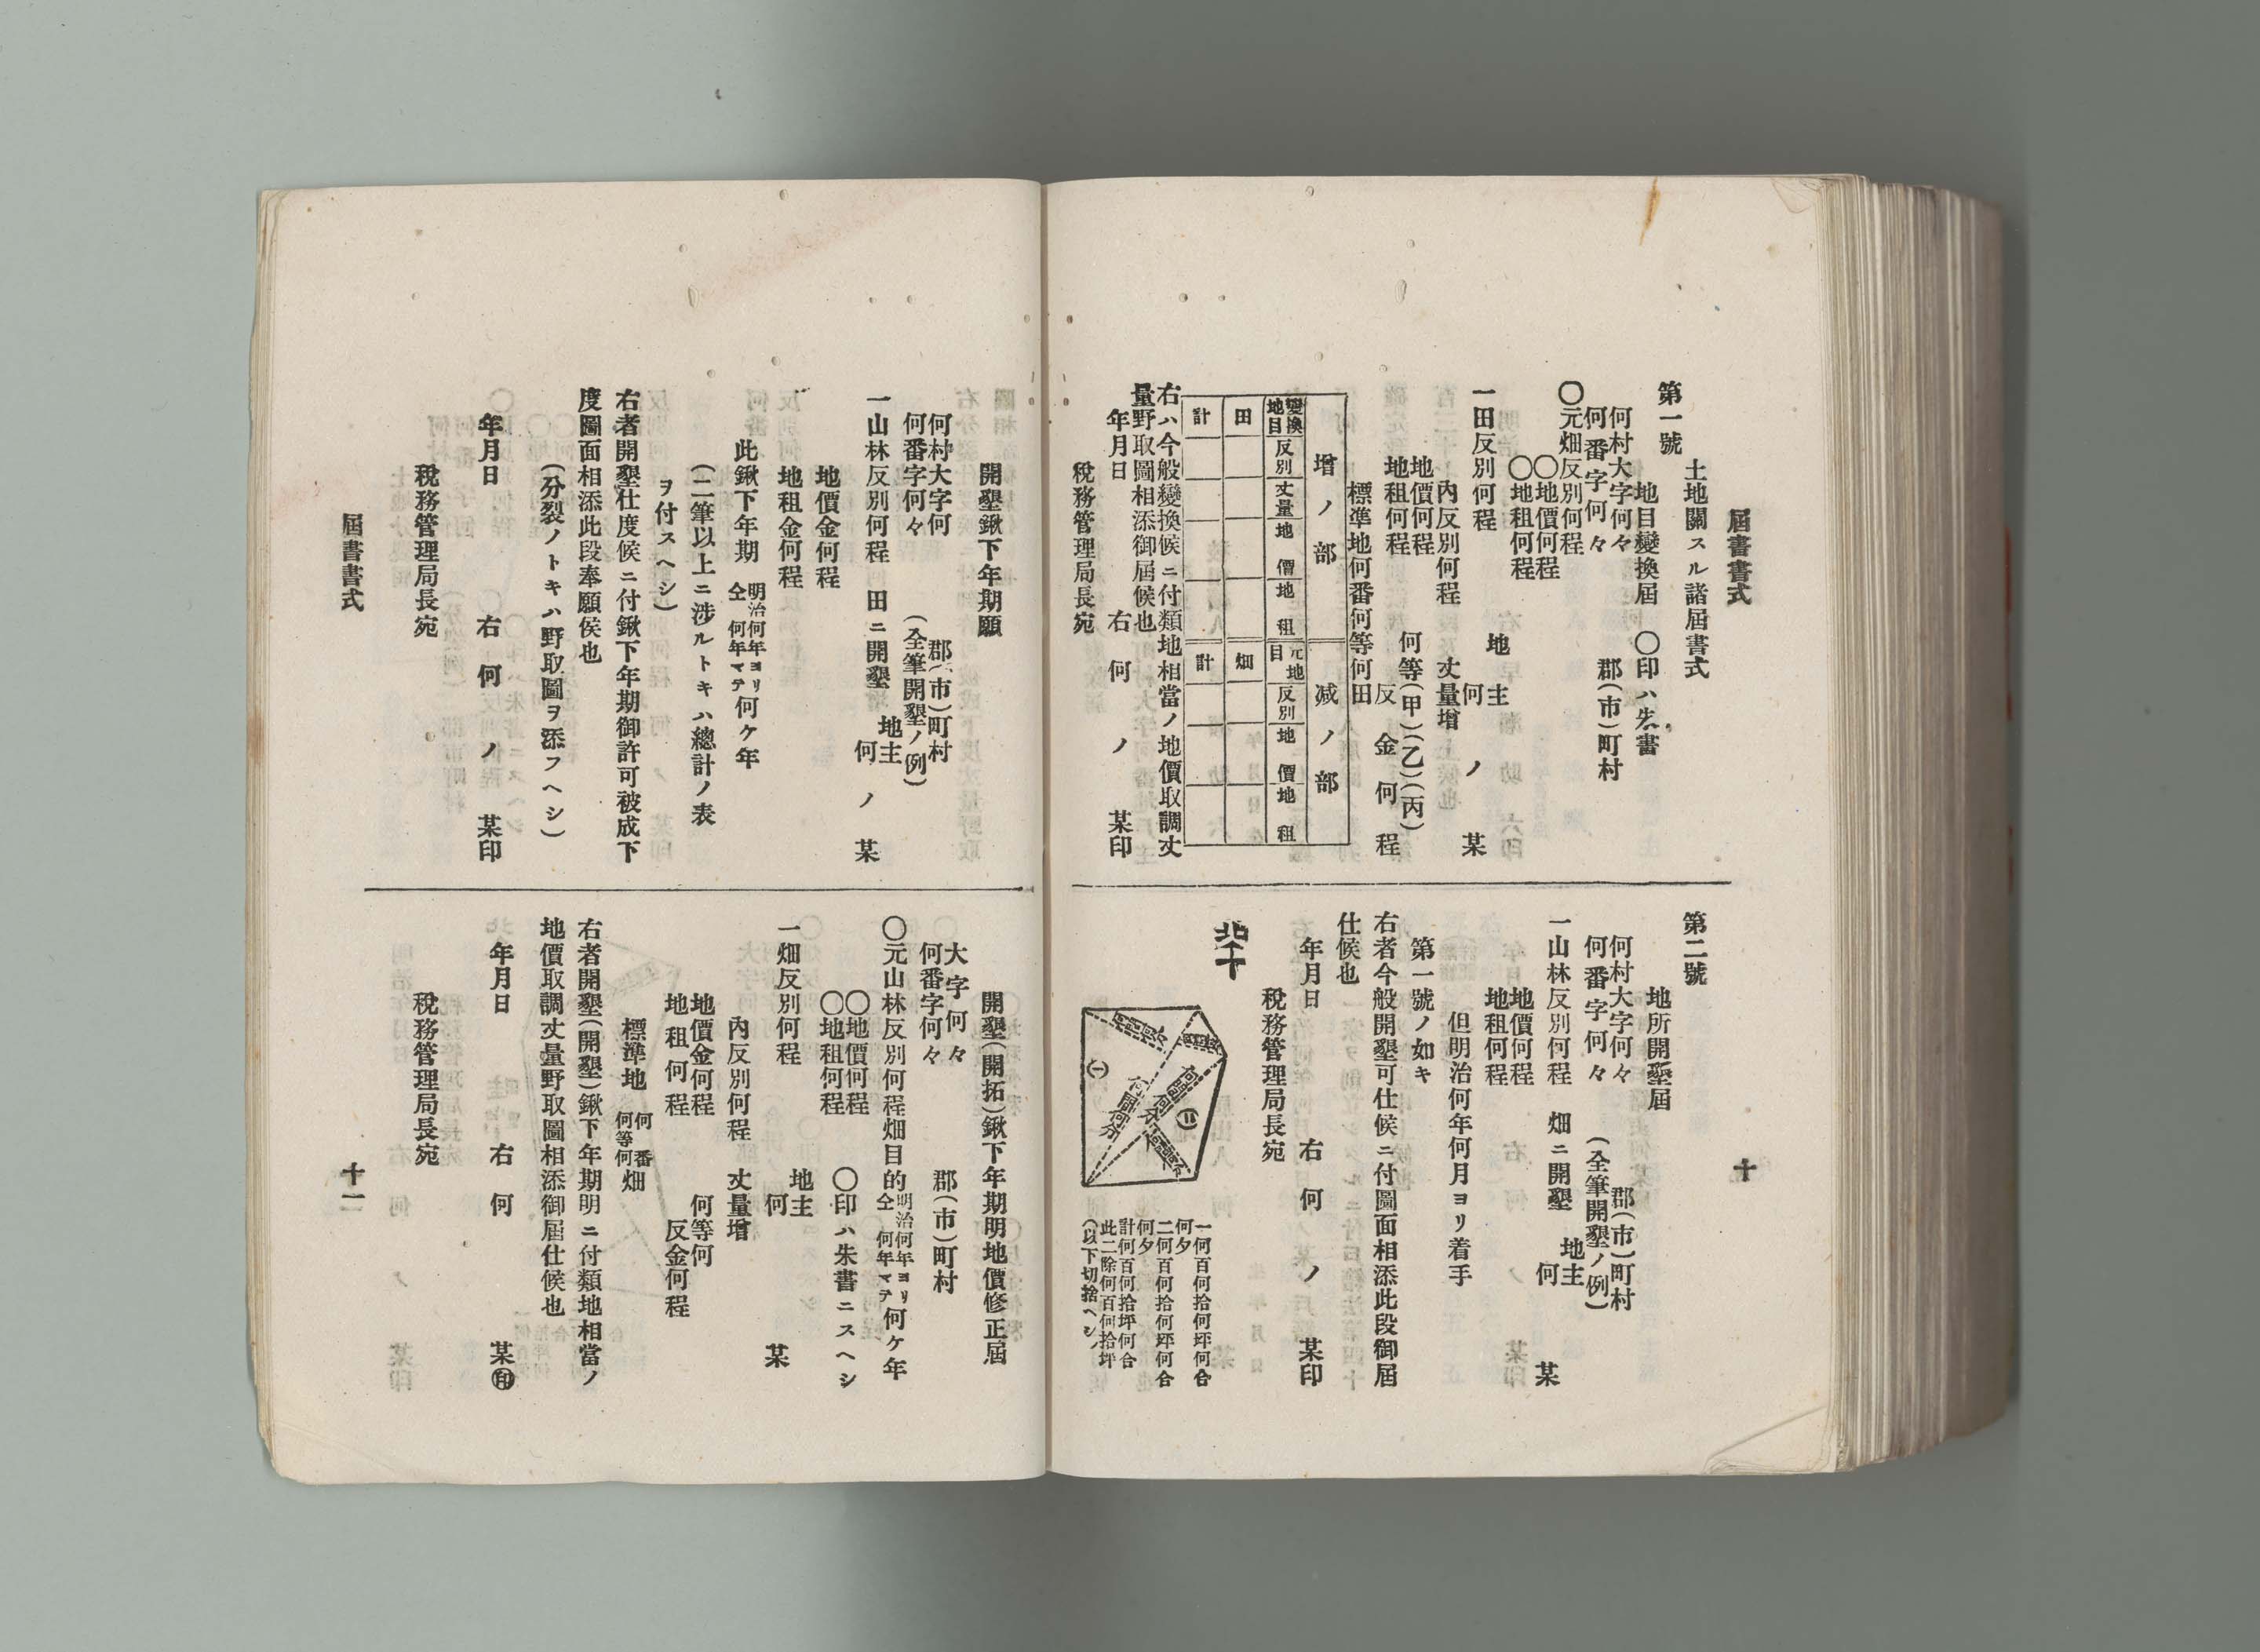 屆書書式
十
土地關スル諸屆書式
第一號
地目變換屆　〇印ハ朱書
何村大字何々　郡(市)町村
何番字何々
〇元畑反別何程
〇地價何程
〇地租何程
地主
一田反別何程　何ノ某
內反別何程　丈量增
地價何程　何等(甲)(乙)(丙)
地租何程　反金何程
標準地何番何等何田
增ノ部　減ノ部
變換地目　反別　丈量　地價　地租　元地目　反別　地價　地租
田　畑
計　計
右ハ今般變換候ニ付類地相當ノ地價取調丈
量野取圖相添御屆候也
年月日　右　何ノ某印
稅務管理局長宛
第二號
地所開墾屆
何村大字何々　郡(市)町村
何番字何々　(全筆開墾ノ例)
地主
一山林反別何程　畑ニ開墾　何某
地價何程
地租何程
但明治何年何月ヨリ着手
第一號ノ如キ
右者今般開墾可仕候ニ付圖面相添此段御屆
仕候也
年月日　右　何ノ某印
稅務管理局長宛
北
(一)
(二)
一何百何拾何坪何合
何夕
二何百何拾何坪何合
何夕
計何百何拾坪何合
此二除何百何拾坪
(以下切捨ヘシ)
開墾鍬下年期願
何村大字何　郡(市)町村
何番字何々　(全筆開墾ノ例)
地主
一山林反別何程　田ニ開墾　何ノ某
地價金何程
地租金何程
此鍬下年期　明治何年ヨリ
仝　何年マテ　何ケ年
(二筆以上ニ涉ルトキハ總計ノ表
ヲ付スヘシ)
右者開墾仕度候ニ付鍬下年期御許可被成下
度圖面相添此段奉願侯也
(分裂ノトキハ野取圖ヲ添フヘシ)
年月日　右　何ノ某印
稅務管理局長宛
開墾(開拓)鍬下年期明地價修正屆
大字何々　郡(市)町村
何番字何々
〇元山林反別何程畑目的　明治何年ヨリ
仝　何年マテ　何ケ年
〇地價何程　〇印ハ朱書ニスヘシ
〇地租何程
地主
一畑反別何程　何某
內反別何程　丈量增
地價金何程　何等何
地租何程　反金何程
標準地　何番
何等何畑
右者開墾(開墾)鍬下年期明ニ付類地相當ノ
地價取調丈量野取圖相添御屆仕候也
年月日　右　何　某㊞
稅務管理局長宛
屆書書式
十一